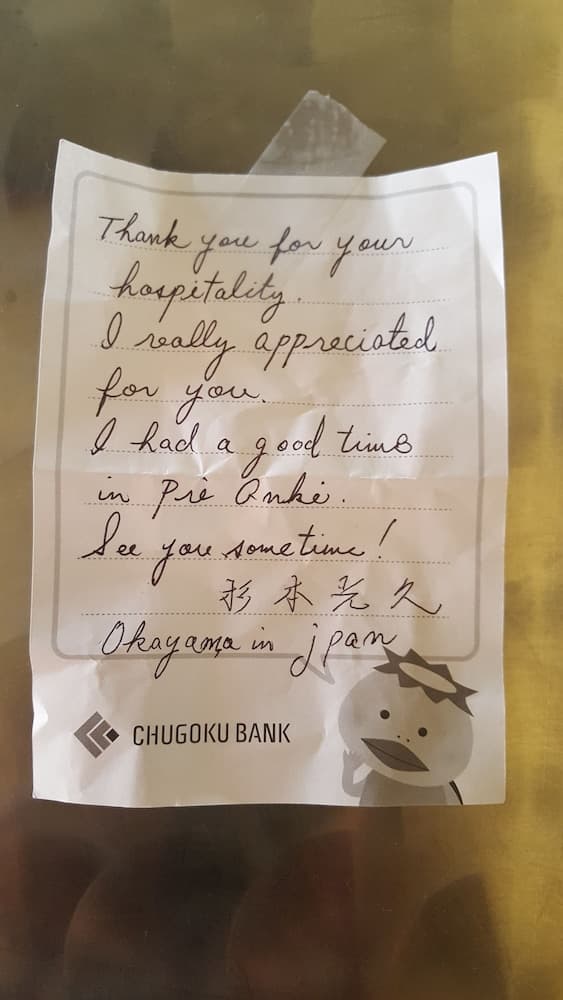 Thank you for your
hospitality.
I really appreciated
for you.
I had a good time
in Prè Anké.
See you sometime!
杉本光久
Okayama in jpan
CHUGOKU BANK